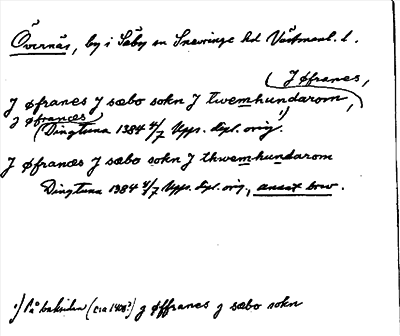 Övernäs, by i Säby sn Snevringe hd Västmanl. l.
J øfranes,
J øfranes J sæbo sokn J twemhundarom,
J øfrances
(Dingtuna 1384 4/7 Upps. dpl. orig. 1)
J øfranæs J sæbo sokn J thwemhundarom
Dingtuna 1384 4/7 Upps. dpl. orig., annat brev.
1) På baksidan (ca 1400?) J øffranes J sæbo sokn